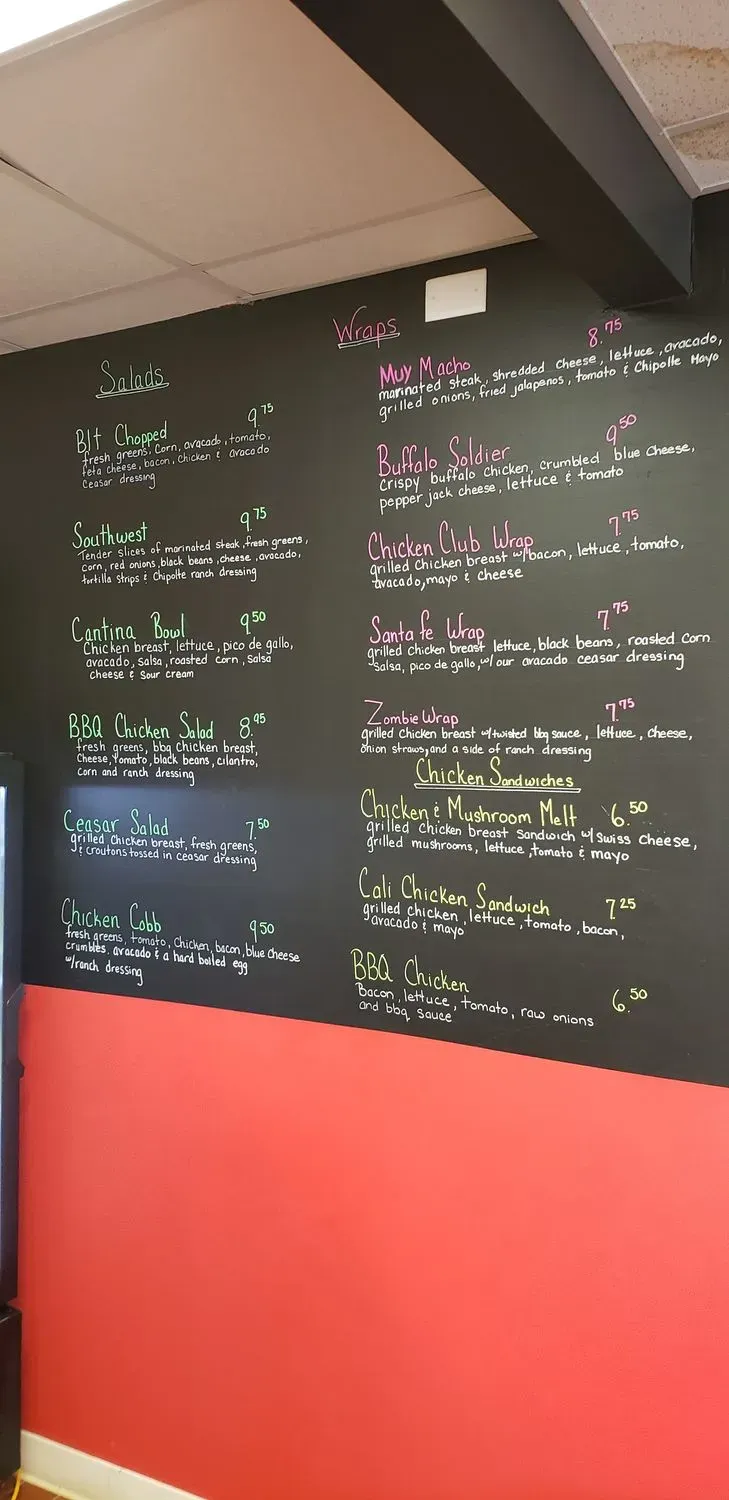 Salads
Blt Chopped 9.75
fresh greens, corn, avocado, tomato,
feta cheese, bacon, chicken & avacado
ceasar dressing
Southwest 9.75
Tender slices of marinated steak, fresh greens,
corn, red onions, black beans, cheese, avocado,
tortilla strips & Chipolte ranch dressing
Cantina Bowl 9.50
Chicken breast, lettuce, pico de gallo,
avocado, salsa, roasted corn, salsa
cheese & sour cream
BBQ Chicken Salad 8.95
fresh greens, bbq chicken breast,
cheese, tomato, black beans, cilantro,
corn and ranch dressing
Ceasar Salad 7.50
grilled chicken breast, fresh greens,
& croutons tossed in ceasar dressing
Chicken Cobb 9.50
fresh greens, tomato, chicken, bacon, blue cheese
crumbles, avocado & a hard boiled egg
w/ranch dressing
Wraps
Muy Macho 8.75
marinated steak, shredded cheese, lettuce, avacado,
grilled onions, fried jalapenos, tomato & Chipolte Mayo
Buffalo Soldier 9.50
crispy buffalo chicken, crumbled blue cheese,
pepper jack cheese, lettuce & tomato
Chicken Club Wrap 7.75
grilled chicken breast w/bacon, lettuce, tomato,
avacado, mayo & cheese
Santa fe Wrap 7.75
grilled chicken breast lettuce, black beans, roasted corn
salsa, pico de gallo, w/ our avacado ceasar dressing
Zombie Wrap 7.75
grilled chicken breast w/twisted bbq sauce, lettuce, cheese,
onion straws, and a side of ranch dressing
Chicken Sandwiches
Chicken & Mushroom Melt 6.50
grilled chicken breast sandwich w/ Swiss cheese,
grilled mushrooms, lettuce, tomato & mayo
Cali Chicken Sandwich 7.25
grilled chicken, lettuce, tomato, bacon,
avacado & mayo
BBQ Chicken 6.50
Bacon, lettuce, tomato, raw onions
and bbq sauce